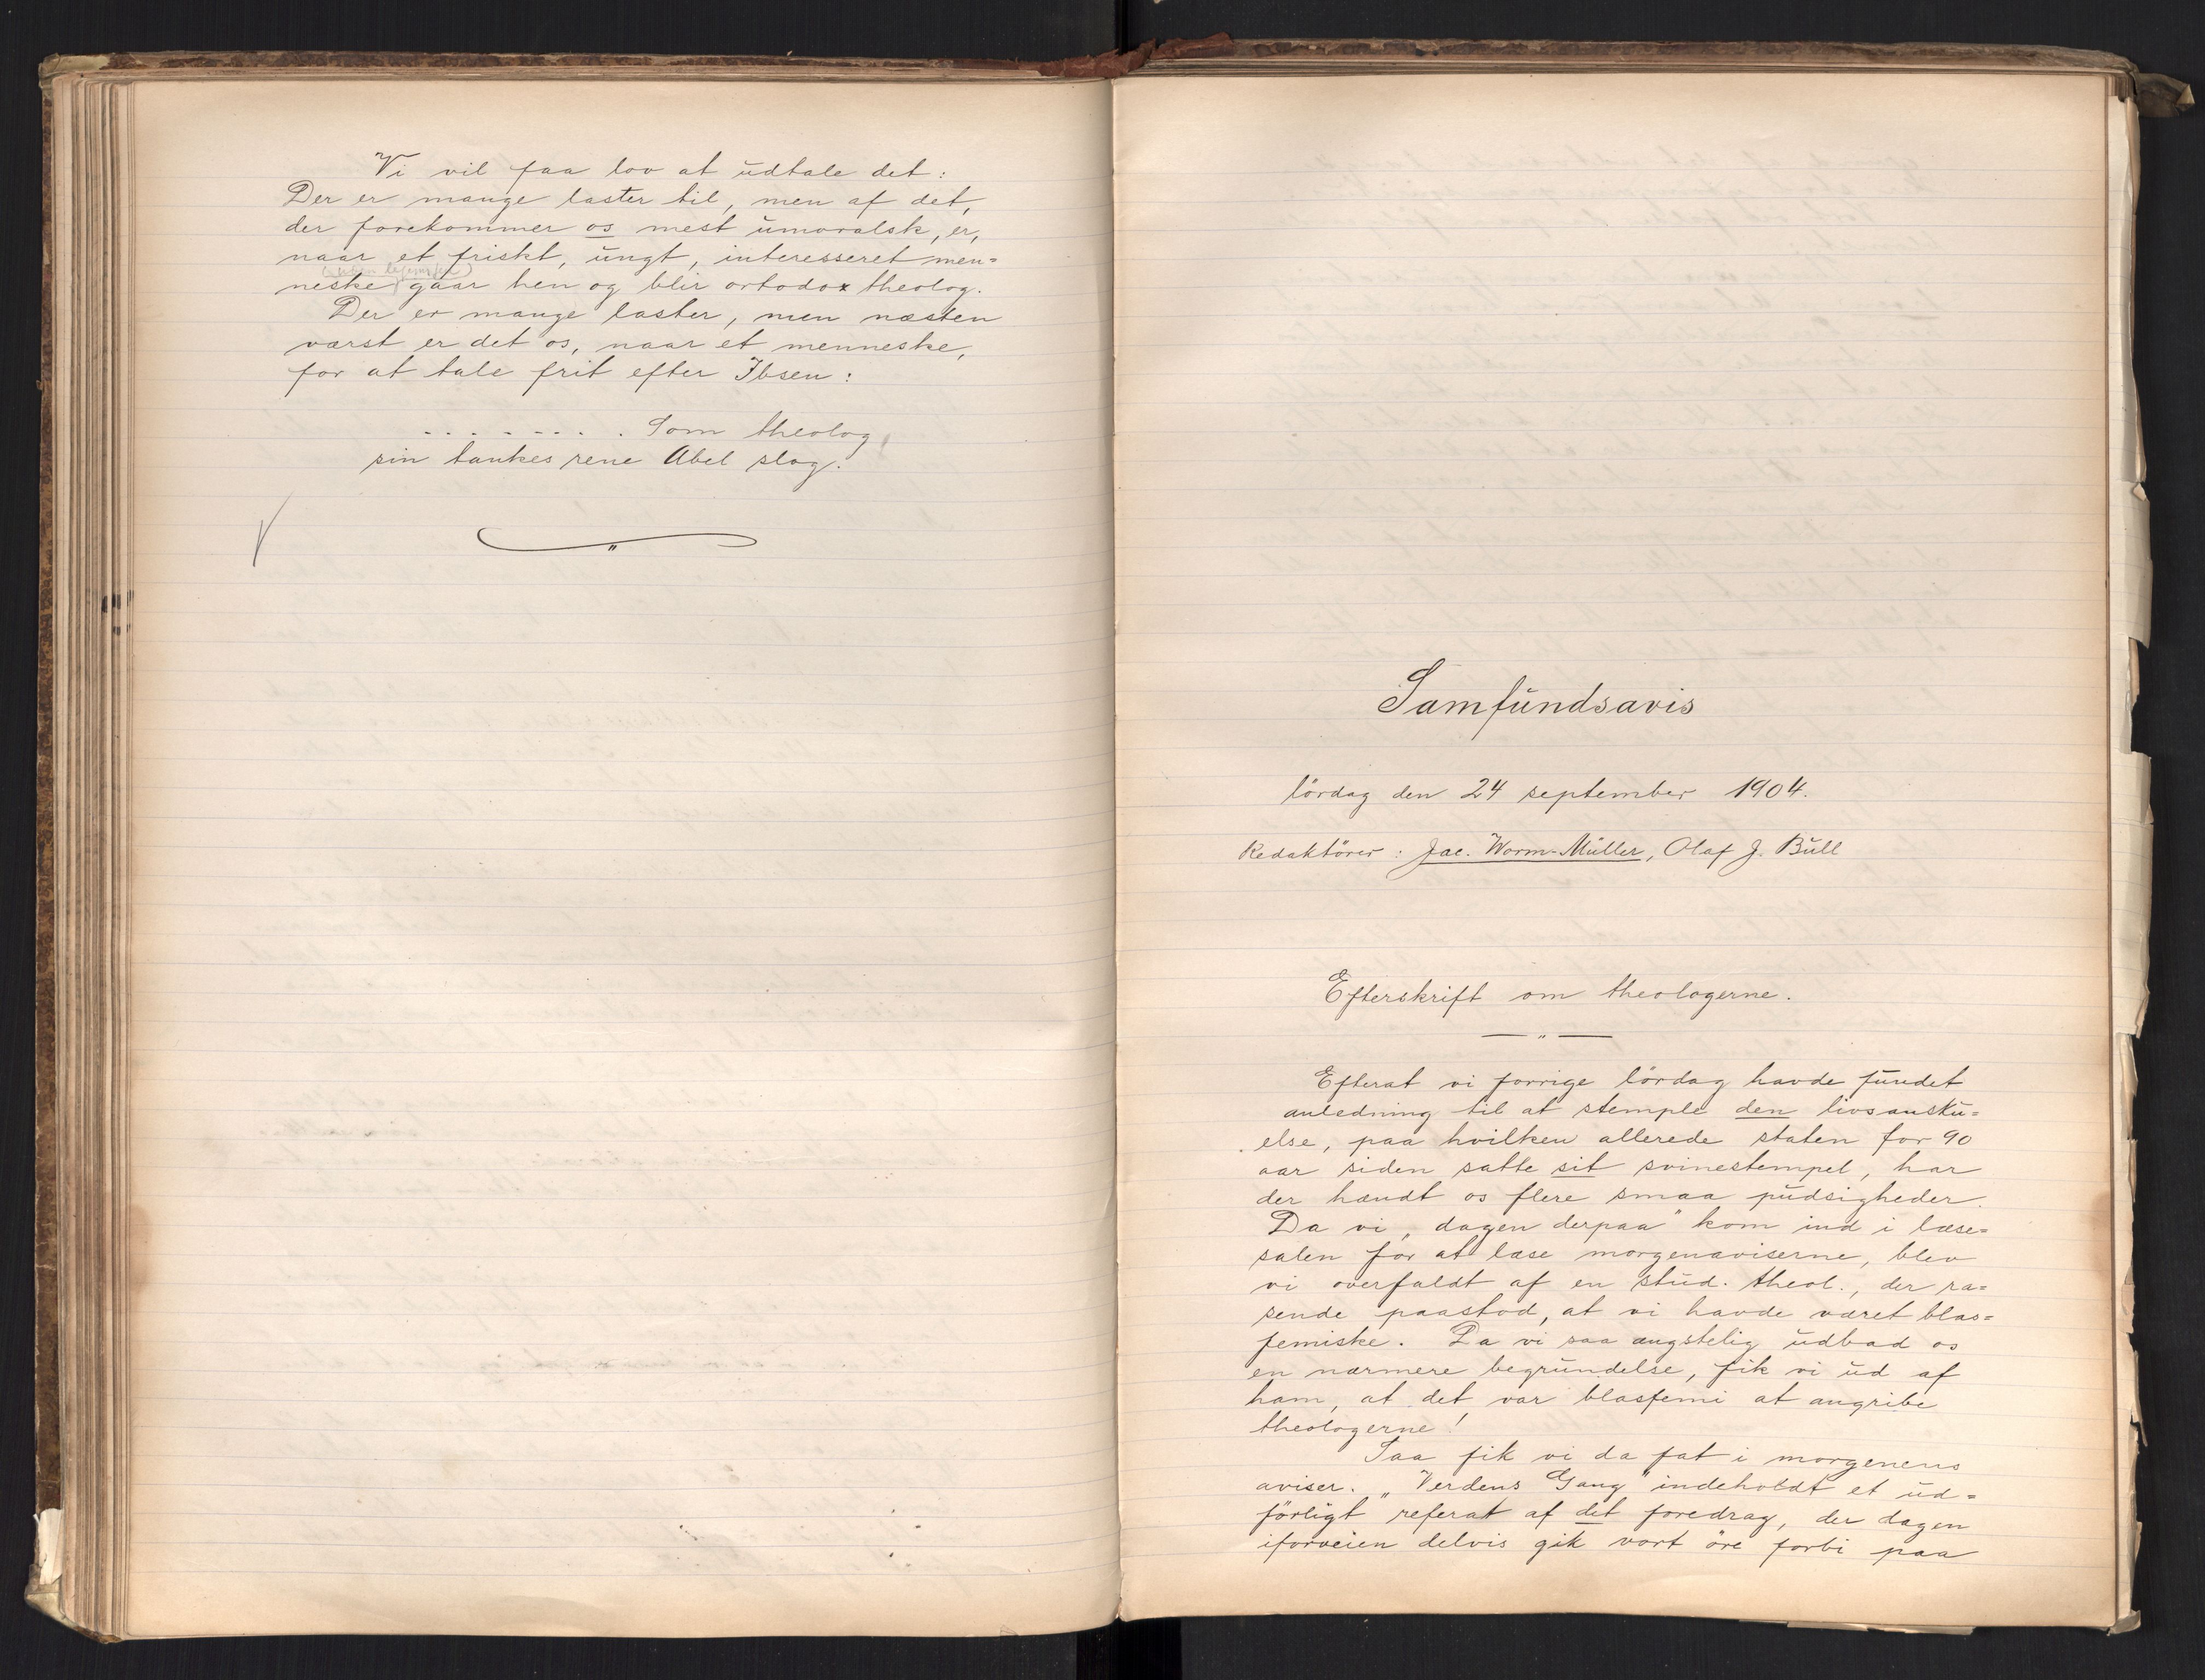 Vi vil faa lov at udtale det:
Der er mange laster til, men af det,
der forekommer os mest umoralsk, er,
naar et friskt, ungt, interesseret men=
neske gaar hen og blir ortodox theolog.
Der er mange laster, men næsten
værst er det os, naar et menneske,
for at tale frit efter Ibsen:
. . . . . . . . Som theolog
sin tankes rene Abel slog.
Samfundsavis
lördag den 24 september 1904.
Redaktörer: Jac. Worm-Müller, Olaf J. Bull
Efterskrift om theologerne.
Efterat vi forrige lördag havde fundet
anledning til at stemple den livsansku=
else, paa hvilken allerede staten for 90
aar siden satte sit svinestempel, har
der hændt os flere smaa pudsigheder.
Da vi „dagen derpaa" kom ind i læse=
salen for at læse morgenaviserne, blev
vi overfaldt af en stud. theol., der ra=
sende paastod, at vi havde været blas=
femiske. Da vi saa ængstelig udbad os
en nærmere begrundelse, fik vi ud af
ham, at det var blasfemi at angribe
theologerne!
Saa fik vi da fat i morgenens
aviser. „Verdens Gang" indeholdt et ud=
förligt referat af det foredrag, der dagen
iforveien delvis gik vort öre forbi paa